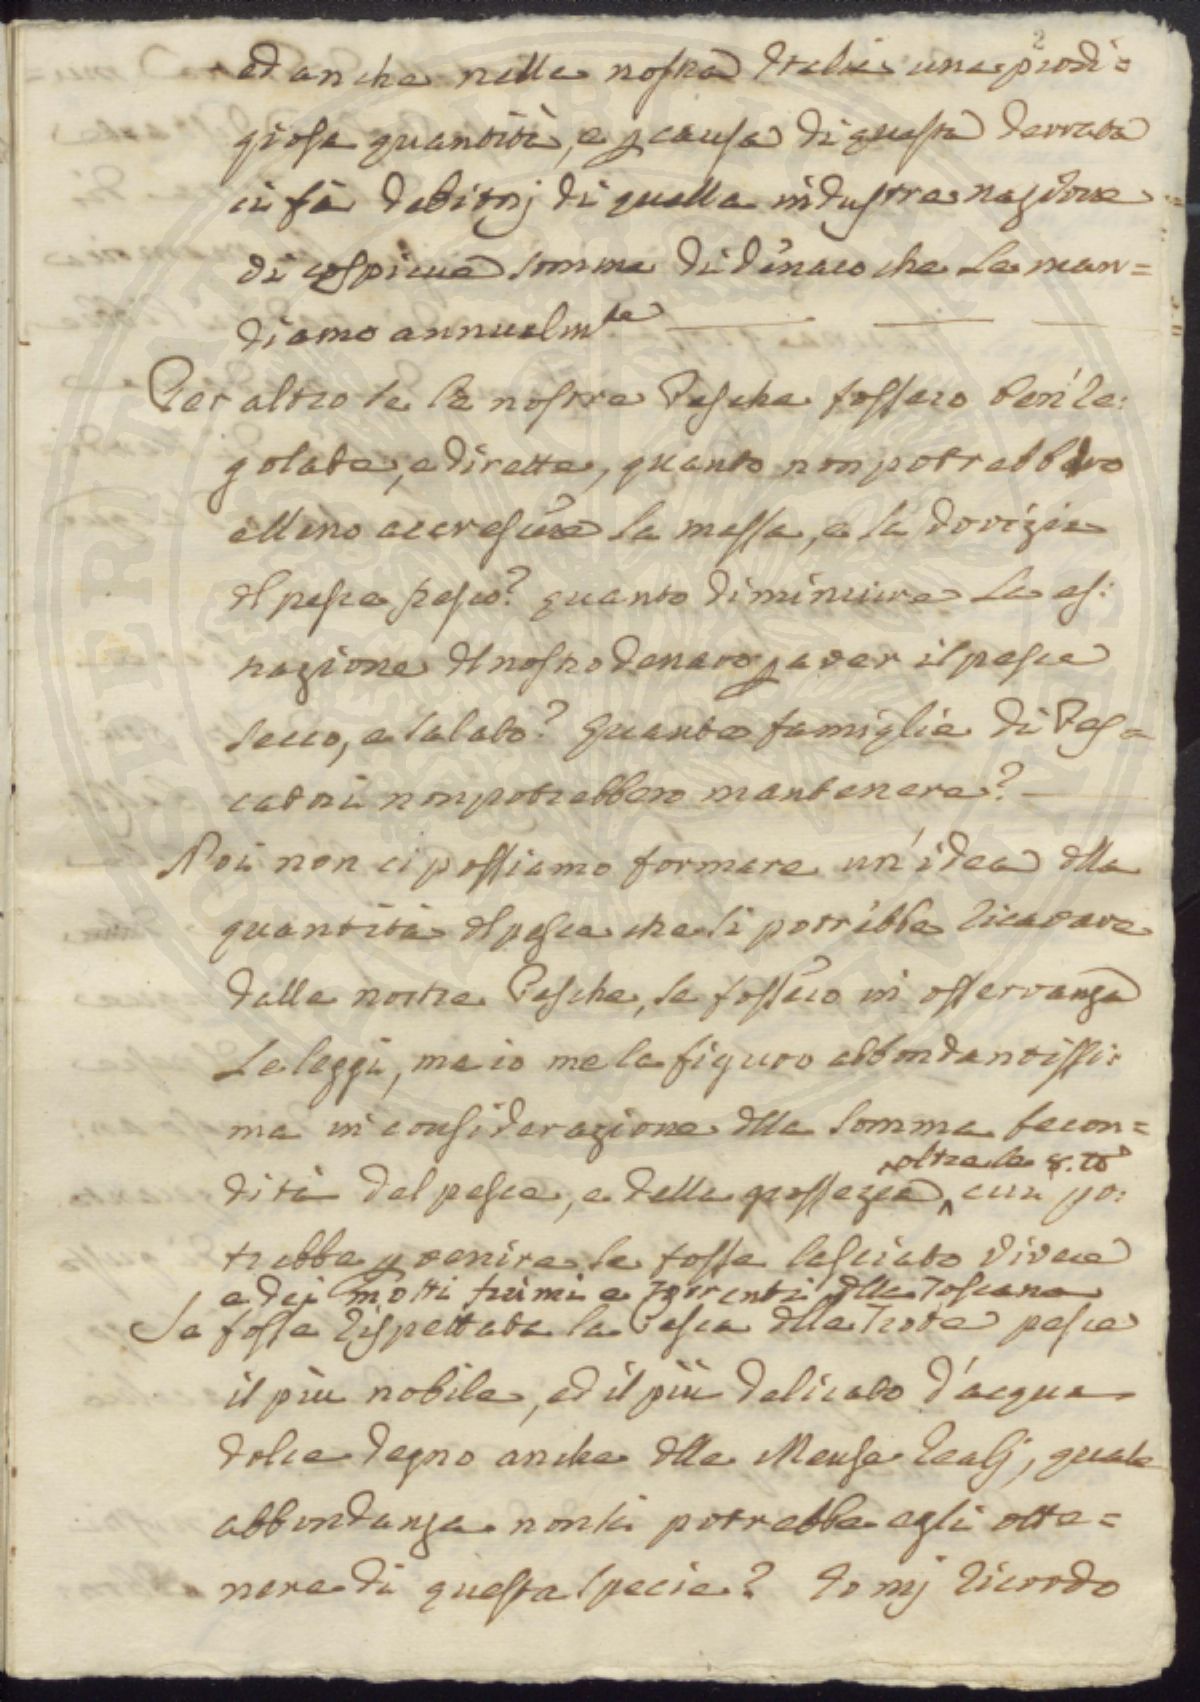 2
ed anche nella nostra Italia una prodi=
giosa quantità, e p causa di questa derrata
ci fà debitorj di quella industre nazione
di cospicue somme di dinaro che le man=
diamo annualm.te
Per altro se le nostre Pesche fossero ben re:
golate, e dirette, quanto non potrebbero
elleno accrescere la massa, e la dovizia
dl pesce fresco? quanto diminuire la es:
nazione dl nostro denaro p aver il pesce
secco, e salato? Quante famiglie di Pes=
catori non potrebbero mantenere?
Noi non ci possiamo formare un'idea dlla
quantità dl pesce che si potrebbe ricavare
dalle nostre Pesche, se fossero in osservanza
Le leggi, ma io me la figuro abbondantissi:
ma in considerazione dlla somma fecon=
oltre le 8. lb
dità del pesce, e della grossezza, cui po:
trebbe pvenire se fosse lasciato vivere
e dei molti fiumi e Torrenti dlla Toscana
Se fosse rispettata la Pesca dlle Trote pesce
il più nobile, ed il più delicato d'acqua
dolce degno anche dlle Mense Realj, quale
abbondanza non si potrebbe egli otte=
nere di questa specie? Io mj ricordo